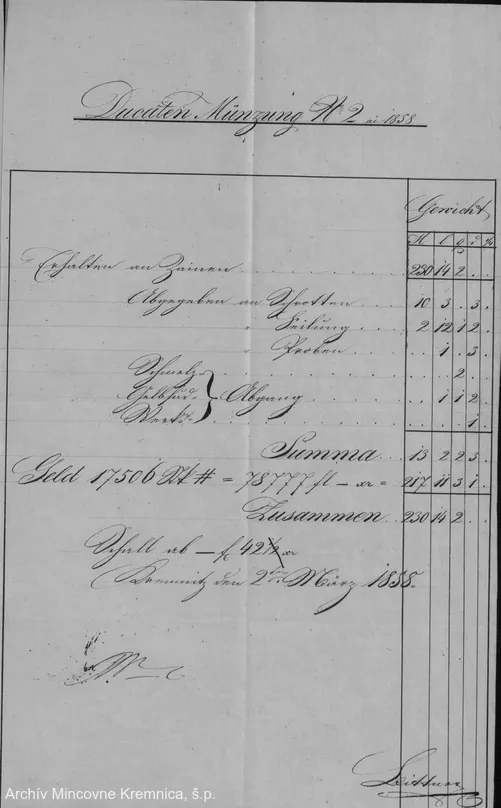 Ducaten Münzung Nº 2 ai 1858
Gewicht
M l q d
Erhalten an Zainen 230 14 2 .
Abgegeben an Schrotten 10 3 . 3
" Feilung 2 12 1 2
" Proben . 1 . 3
Schmelz- . . 2 .
Gelbsud- } Abgang . 1 1 2
Werk- . . . 1
Summa 13 2 2 3
Geld 17506 St # = 78777 fl – xr = 217 11 3 1
Zusammen 230 14 2 .
Schalt ab – f 42½ xr
Kremnitz den 2ten März 1858.
Archív Mincovne Kremnica, š.p.